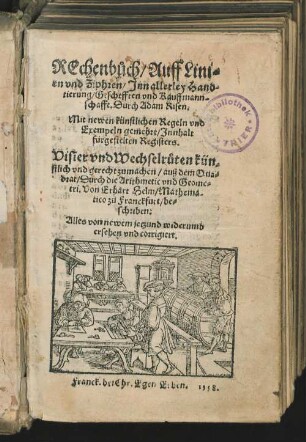 REchenbůch/Auff Lini-
en vnd Ziphren/Inn allerley Hand-
tierung/Geschefften vnd Kauffmann-
schafft. Durch Adam Risen.
Mit newen künstlichen Regeln vnd
Exempeln gemehrt/Innhalt
fürgestelten Registers.
Visier vnd Wechselrůten kün-
stlich vnd gerecht zumachen/auß dem Qua-
drat/Durch die Arithmetic vnd Geome-
tri. Von Erhart Helm/Mathema-
tico zů Franckfurt/be-
schriben:
Alles von newem jetzund widerumb
ersehen vnd corrigirt.
Franck. bei Chr. Egen. Erben.
Bibliothek